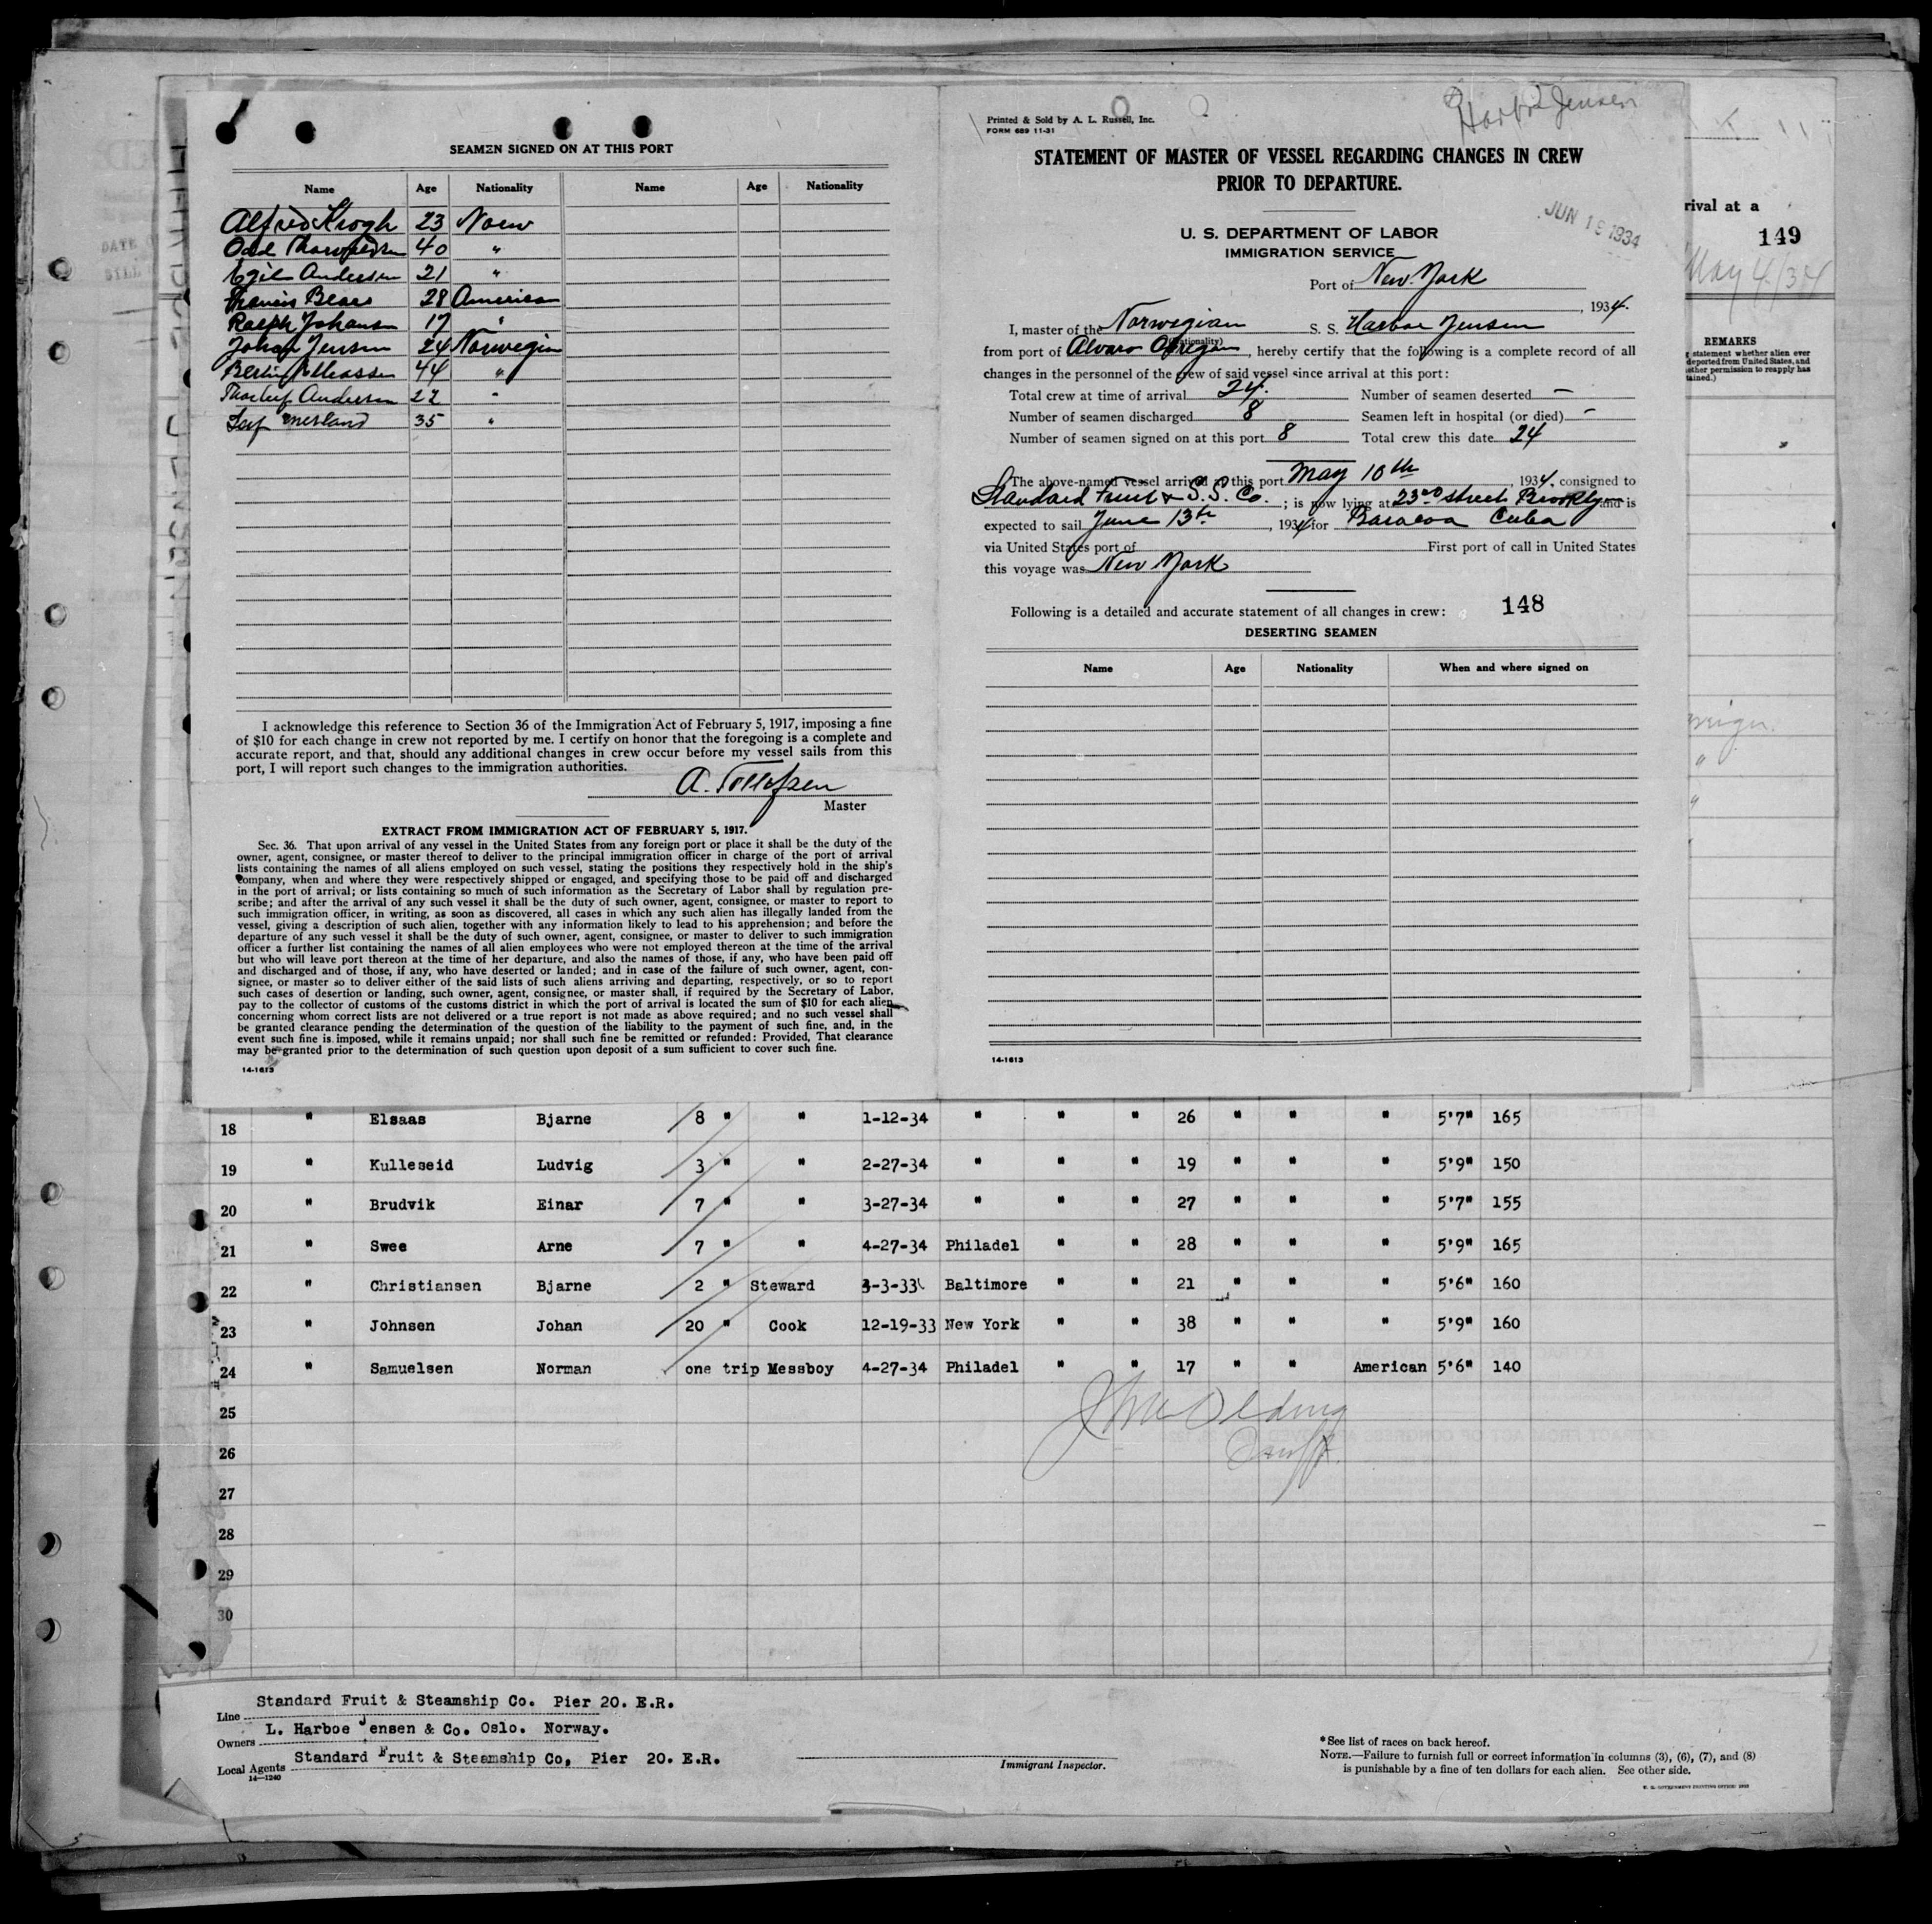 SEAMEN SIGNED ON AT THIS PORT
Name Age Nationality Name Age Nationality
Alfred Krogh 23 Norw
Odd 40 "
Egil Andersen 21 "
Francis 28 American
Ralph Johansen 17 "
Johan Jensen 24 Norwegian
44 "
Thorleif Andersen 22 "
35 "
I acknowledge this reference to Section 36 of the Immigration Act of February 5, 1917, imposing a fine
of $10 for each change in crew not reported by me. I certify on honor that the foregoing is a complete and
accurate report, and that, should any additional changes in crew occur before my vessel sails from this
port, I will report such changes to the immigration authorities.
A. Tollefsen
Master
EXTRACT FROM IMMIGRATION ACT OF FEBRUARY 5, 1917.
Sec. 36. That upon arrival of any vessel in the United States from any foreign port or place it shall be the duty of the
owner, agent, consignee, or master thereof to deliver to the principal immigration officer in charge of the port of arrival
lists containing the names of all aliens employed on such vessel, stating the positions they respectively hold in the ship's
company, when and where they were respectively shipped or engaged, and specifying those to be paid off and discharged
in the port of arrival; or lists containing so much of such information as the Secretary of Labor shall by regulation pre-
scribe; and after the arrival of any such vessel it shall be the duty of such owner, agent, consignee, or master to report to
such immigration officer, in writing, as soon as discovered, all cases in which any such alien has illegally landed from the
vessel, giving a description of such alien, together with any information likely to lead to his apprehension; and before the
departure of any such vessel it shall be the duty of such owner, agent, consignee, or master to deliver to such immigration
officer a further list containing the names of all alien employees who were not employed thereon at the time of the arrival
but who will leave port thereon at the time of her departure, and also the names of those, if any, who have been paid off
and discharged and of those, if any, who have deserted or landed; and in case of the failure of such owner, agent, con-
signee, or master so to deliver either of the said lists of such aliens arriving and departing, respectively, or so to report
such cases of desertion or landing, such owner, agent, consignee, or master shall, if required by the Secretary of Labor,
pay to the collector of customs of the customs district in which the port of arrival is located the sum of $10 for each alien
concerning whom correct lists are not delivered or a true report is not made as above required; and no such vessel shall
be granted clearance pending the determination of the question of the liability to the payment of such fine, and, in the
event such fine is imposed, while it remains unpaid; nor shall such fine be remitted or refunded: Provided, That clearance
may be granted prior to the determination of such question upon deposit of a sum sufficient to cover such fine.
14-1613
Printed & Sold by A. L. Russell, Inc.
FORM 689 11-31
Jensen
STATEMENT OF MASTER OF VESSEL REGARDING CHANGES IN CREW
PRIOR TO DEPARTURE.
JUN 19 1934
U. S. DEPARTMENT OF LABOR
IMMIGRATION SERVICE
Port of New York
, 1934.
I, master of the Norwegian S. S. Harboe Jensen
(Nationality)
from port of Alvaro Obregon, hereby certify that the following is a complete record of all
changes in the personnel of the crew of said vessel since arrival at this port:
Total crew at time of arrival 24. Number of seamen deserted –
Number of seamen discharged 8 Seamen left in hospital (or died) –
Number of seamen signed on at this port 8 Total crew this date 24
The above-named vessel arrived at this port May 10th, 1934. consigned to
Standard Fruit & S.S. Co. ; is now lying at 23rd street Brooklyn and is
expected to sail June 13th, 1934 for Baracoa Cuba
via United States port of First port of call in United States
this voyage was New York
Following is a detailed and accurate statement of all changes in crew: 148
DESERTING SEAMEN
Name Age Nationality When and where signed on
14-1613
rival at a
149
May 4/34
REMARKS
statement whether alien ever
deported from United States, and
ether permission to reapply has
tained.)
18 " Elsaas Bjarne 8 " " 1-12-34 " " " 26 " " " 5'7" 165
19 " Kulleseid Ludvig 3 " " 2-27-34 " " " 19 " " " 5'9" 150
20 " Brudvik Einar 7 " " 3-27-34 " " " 27 " " " 5'7" 155
21 " Swee Arne 7 " " 4-27-34 Philadel " " 28 " " " 5'9" 165
22 " Christiansen Bjarne 2 " Steward 3-3-33 Baltimore " " 21 " " " 5'6" 160
23 " Johnsen Johan 20 " Cook 12-19-33 New York " " 38 " " " 5'9" 160
24 " Samuelsen Norman one trip Messboy 4-27-34 Philadel " " 17 " " American 5'6" 140
25
26
27
28
29
30
Line Standard Fruit & Steamship Co. Pier 20. E.R.
Owners L. Harboe Jensen & Co. Oslo. Norway.
Local Agents Standard Fruit & Steamship Co, Pier 20. E.R.
14—1240
Immigrant Inspector.
*See list of races on back hereof.
NOTE.—Failure to furnish full or correct information in columns (3), (6), (7), and (8)
is punishable by a fine of ten dollars for each alien. See other side.